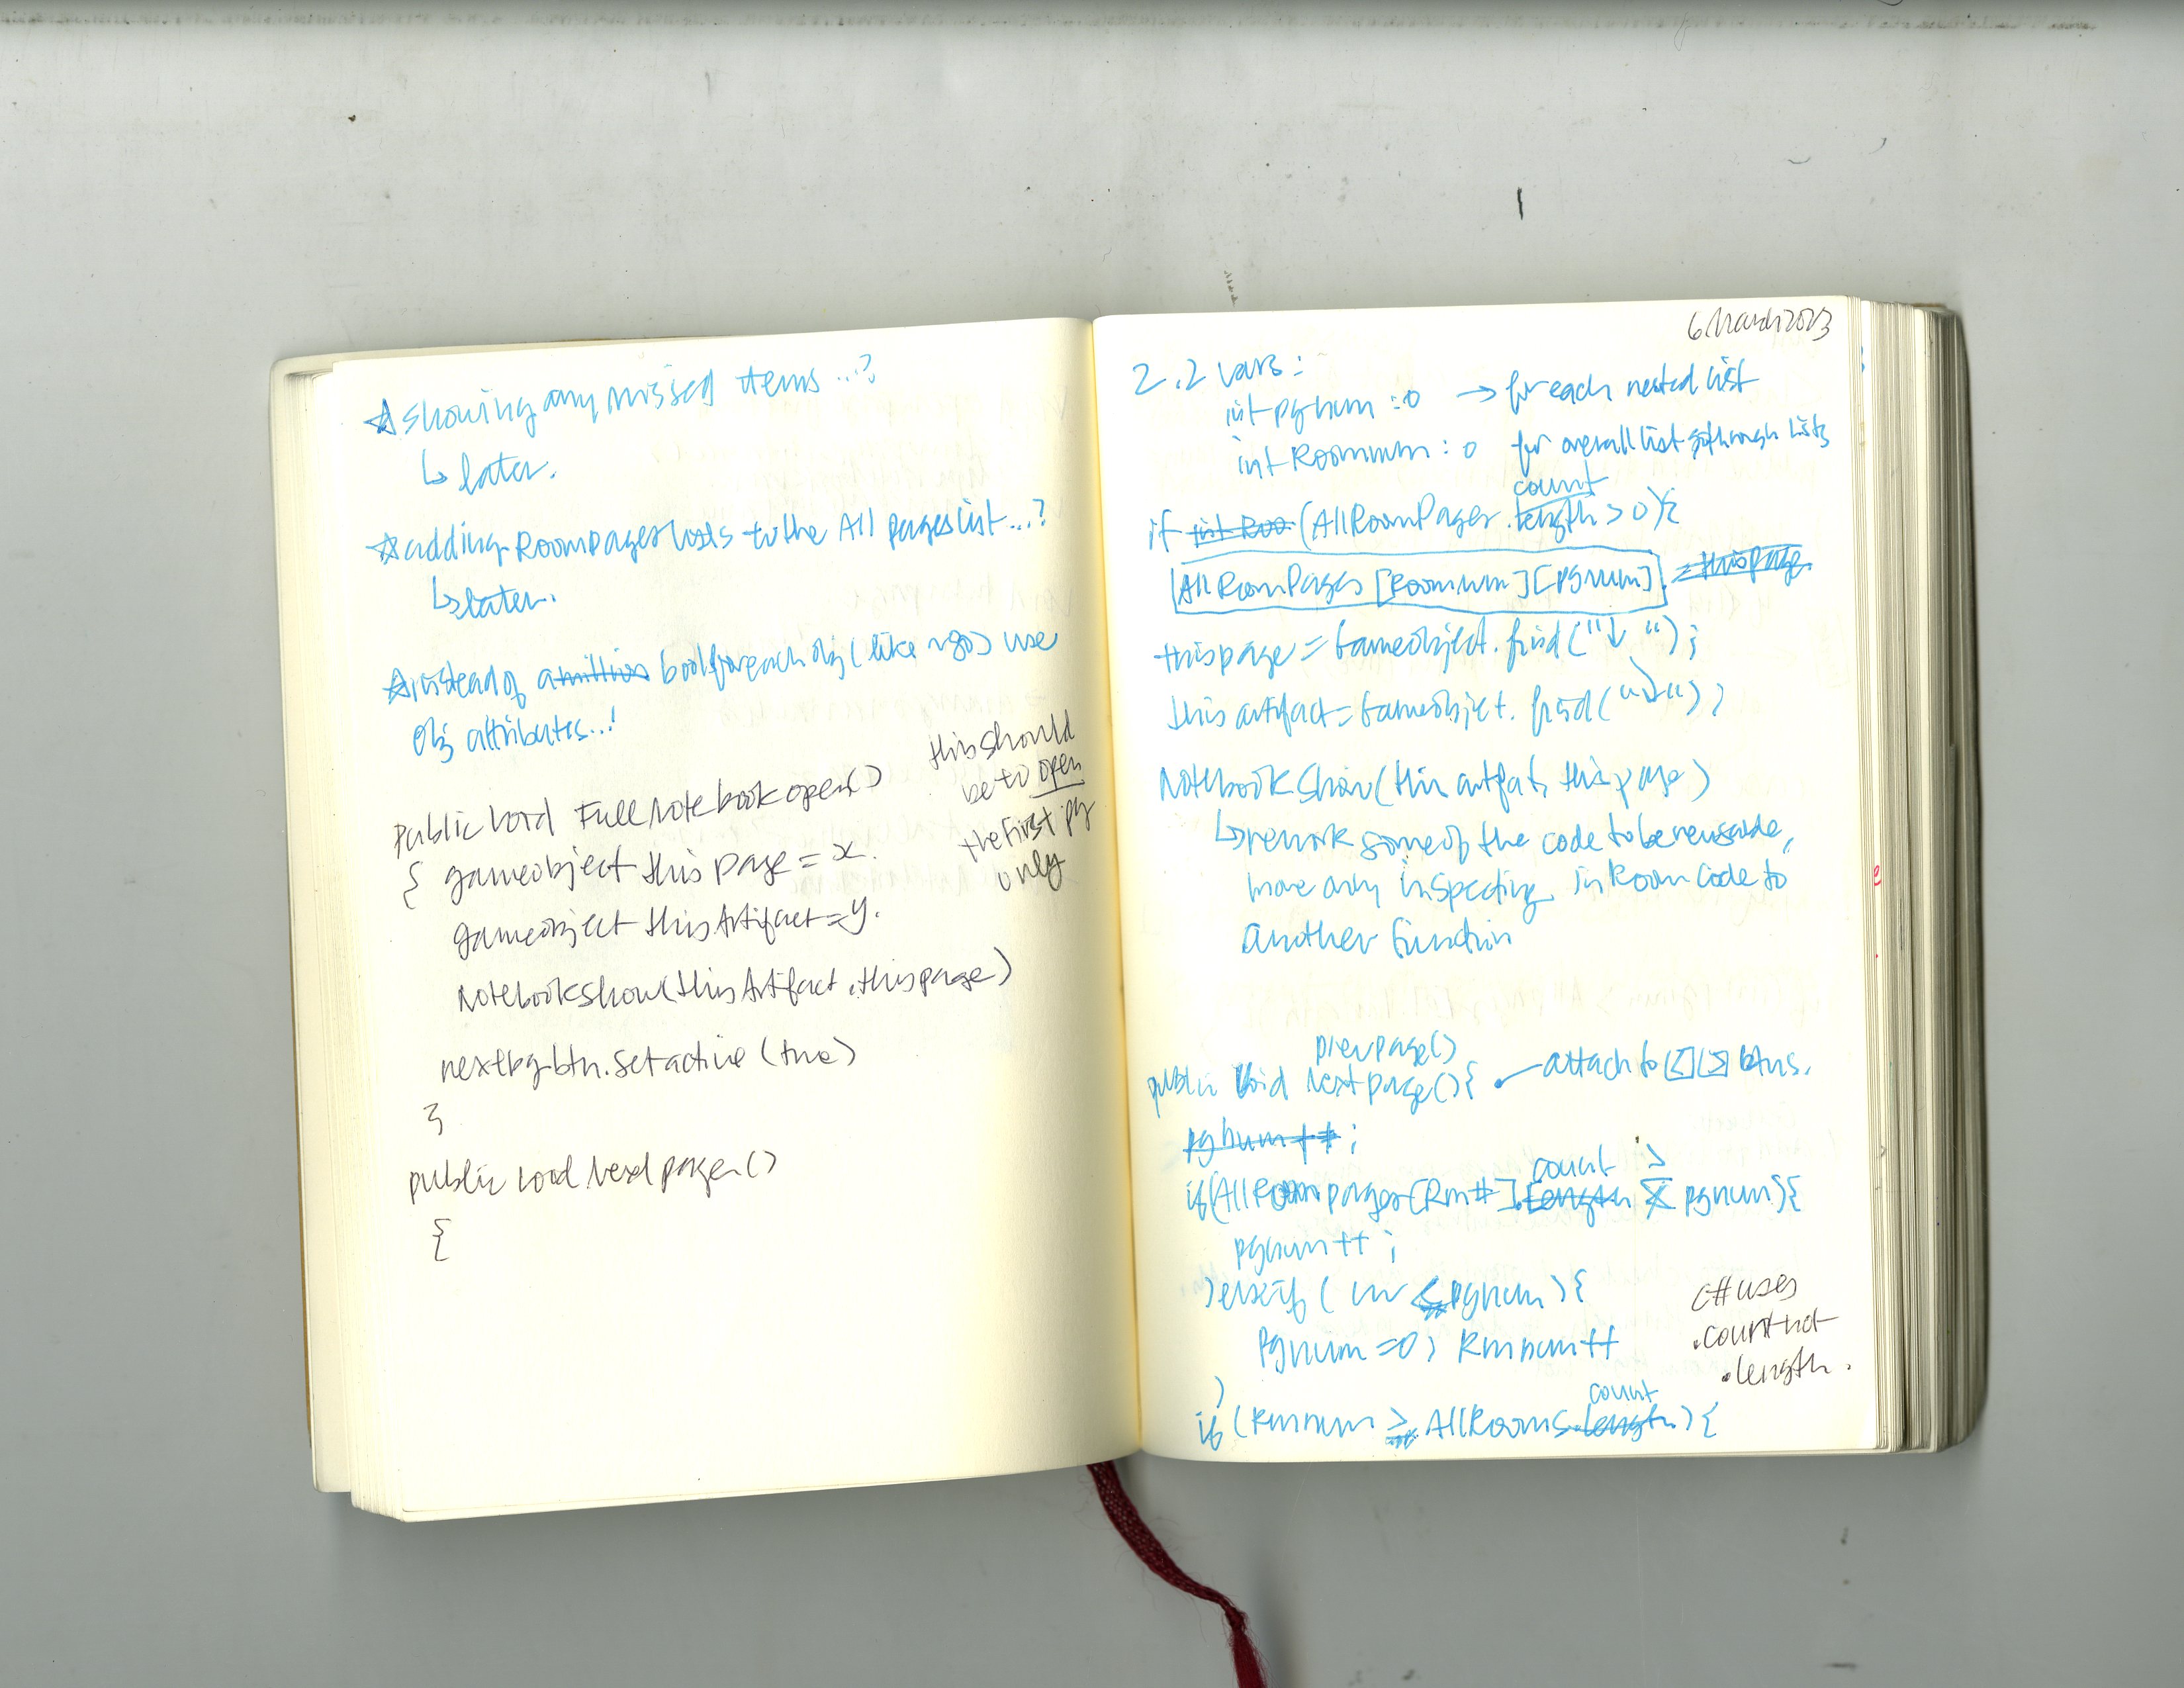 ☆ showing any missed items ...?
↳ later.
☆ adding RoomPages lists to the All pages list...?
↳ later.
☆ instead of a million bool for each obj (like ) use
obj attributes...!
public void FullNotebookopen()
this should
be to open
the first pg
only
{ gameobject this page = x.
gameobject this Artifact = y.
Notebookshow(thisArtifact, thispage)
nextpgbtn.setactive (true)
}
public void Nextpage()
{
6 March 2023
2.2 vars:
int pgnum : 0 → for each nested list
int Roomnum : 0 for overall list go through lists
count
if int Roo (AllRoomPages.length > 0){
AllRoomPages [Roomnum][pgnum]. = thispage.
thispage = Gameobject.find("↓");
this artifact = Gameobject.find("↓");
Notebookshow(this artifact, this page)
↳ rework some of the code to be reusable,
move any inspecting in Room code to
another function
prevpage()
public void Nextpage(){ attach to [<][>] btns.
pgnum++;
count ≥
if(AllRoompages[Rm#].length pgnum){
pgnum++;
}else if( ≤ pgnum){
Pgnum = 0; Rmnum++
C# uses
.count not
.length.
}
count
if (Rmnum ≥ AllRooms.length){